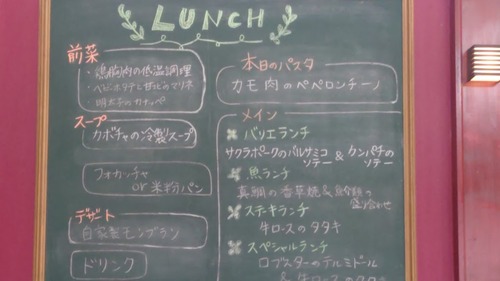 LUNCH
前菜
・鶏胸肉の低温調理
・ベビーホタテと甘エビのマリネ
・明太子のカナッペ
スープ
カボチャの冷製スープ
フォカッチャ
or 米粉パン
デザート
自家製モンブラン
ドリンク
本日のパスタ
カモ肉のペペロンチーノ
メイン
バリエランチ
サクラポークのバルサミコソテー & カンパチのソテー
魚ランチ
真鯛の香草焼 &
盛り合わせ
ステキランチ
牛ロースのタタキ
スペシャルランチ
ロブスターのテルミドール
& 牛ロースの